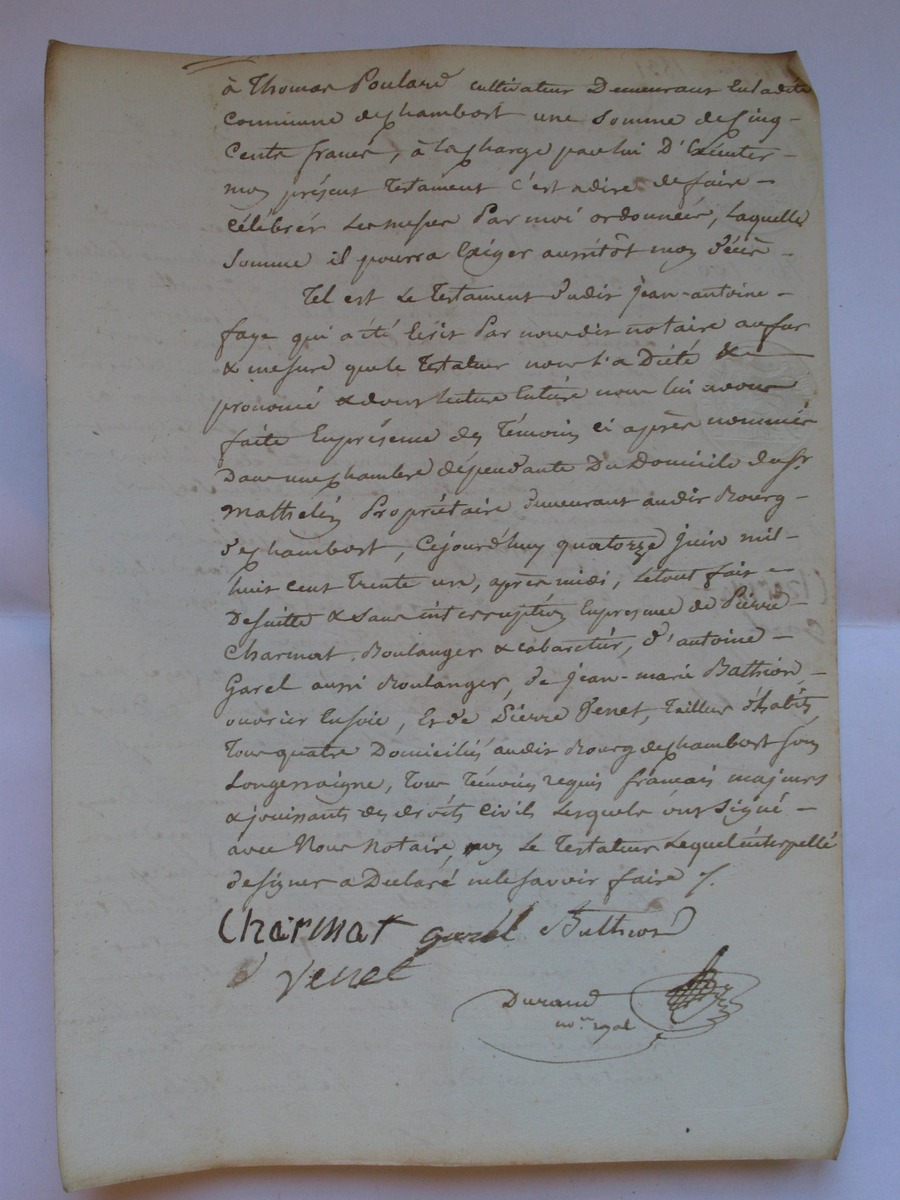 à Thomas Poulard cultivateur Demeurant En ladite
Commune de Chambost une Somme de Cinq-
Cents francs, à la Charge par lui D'Exécuter-
mon présent Testament C'est adire de faire-
Célébrér Les messes Par moi ordonnées, Laquelle
Somme il pourra Exiger aussitôt mon décès-
Tel est Le Testament dudit Jean-antoine-
faye qui a été Ecrit Par nous dit notaire au fur
& mesure que le Testateur nous l'a Dicté &
prononcé & dont lecture Entière nous lui avons
faite En présence des Témoins ci après nommés
Dans une Chambre dépendante Du Domicile du Sr
Mathelin Propriétaire demeurant audit Bourg-
de Chambost, Cejourd'huy quatorze juin mil-
huit cent Trente un, après midi, Le tout fait
De suitte & Sans interruption En présence de Pierre-
Charmat, Boulanger & Cabaretier, d'antoine-
Garel aussi Boulanger, de Jean-marie Bathion,
ouvrier En soie, Et de Pierre Venet, Tailleur d'habits
Tous quatre Domiciliés audit Bourg de Chambost
Longessaigne, Tous Témoins requis français majeurs
& jouissants des droits Civil Lesquels ont Signé-
avec Nous Notaire, non Le Testateur Lequel interpellé
de signer a Déclaré ne le savoir faire /.
Charmat garel Bathion
Venet
Durand
nore royal